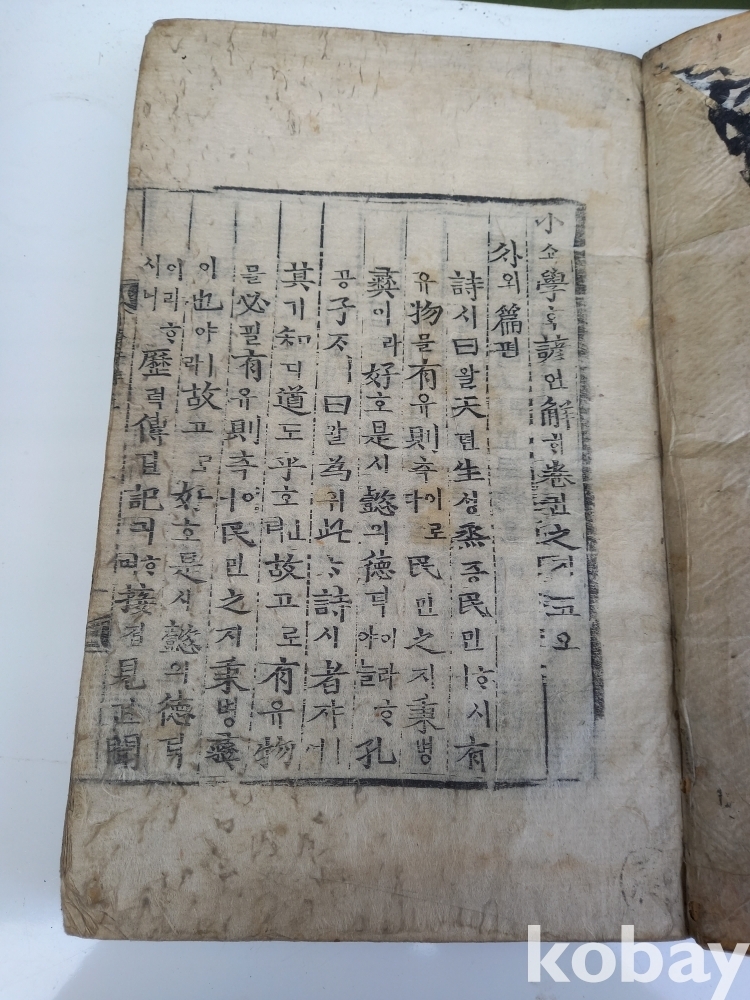 小쇼學ᄒᆞᆨ諺언解ᄒᆡ卷권之지五오
外외篇편
詩시曰왈天텬生ᄉᆡᆼ烝증民민ᄒᆞ시니有
유物믈有유則측이로다民민之지秉병
彛이라好호是시懿의德덕이라ᄒᆞ야늘孔
공子ᄌᆞㅣ曰왈為위此ᄎᆞ詩시者쟈ㅣ
其기知디道도乎호ㅣᆫ뎌故고로有유物
믈必필有유則측이니民민之지秉병彛
이也야ㅣ라故고로好호是시懿의德덕
이라ᄒᆞ시니歷력傳뎐記긔ᄒᆞ接졉見견聞
kobay